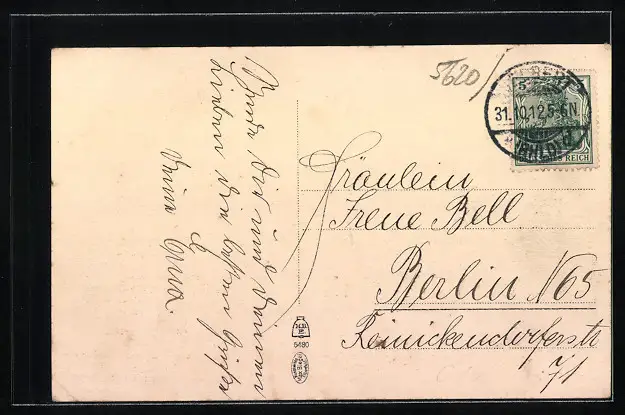 Sende Dir und Deinen
Lieben die besten Grüße
Deine Anna
5620
31.10.12.5-6N.
5
REICH
Fräulein
Irene Bell
Berlin N65
Reinickendorferstr
71
5490